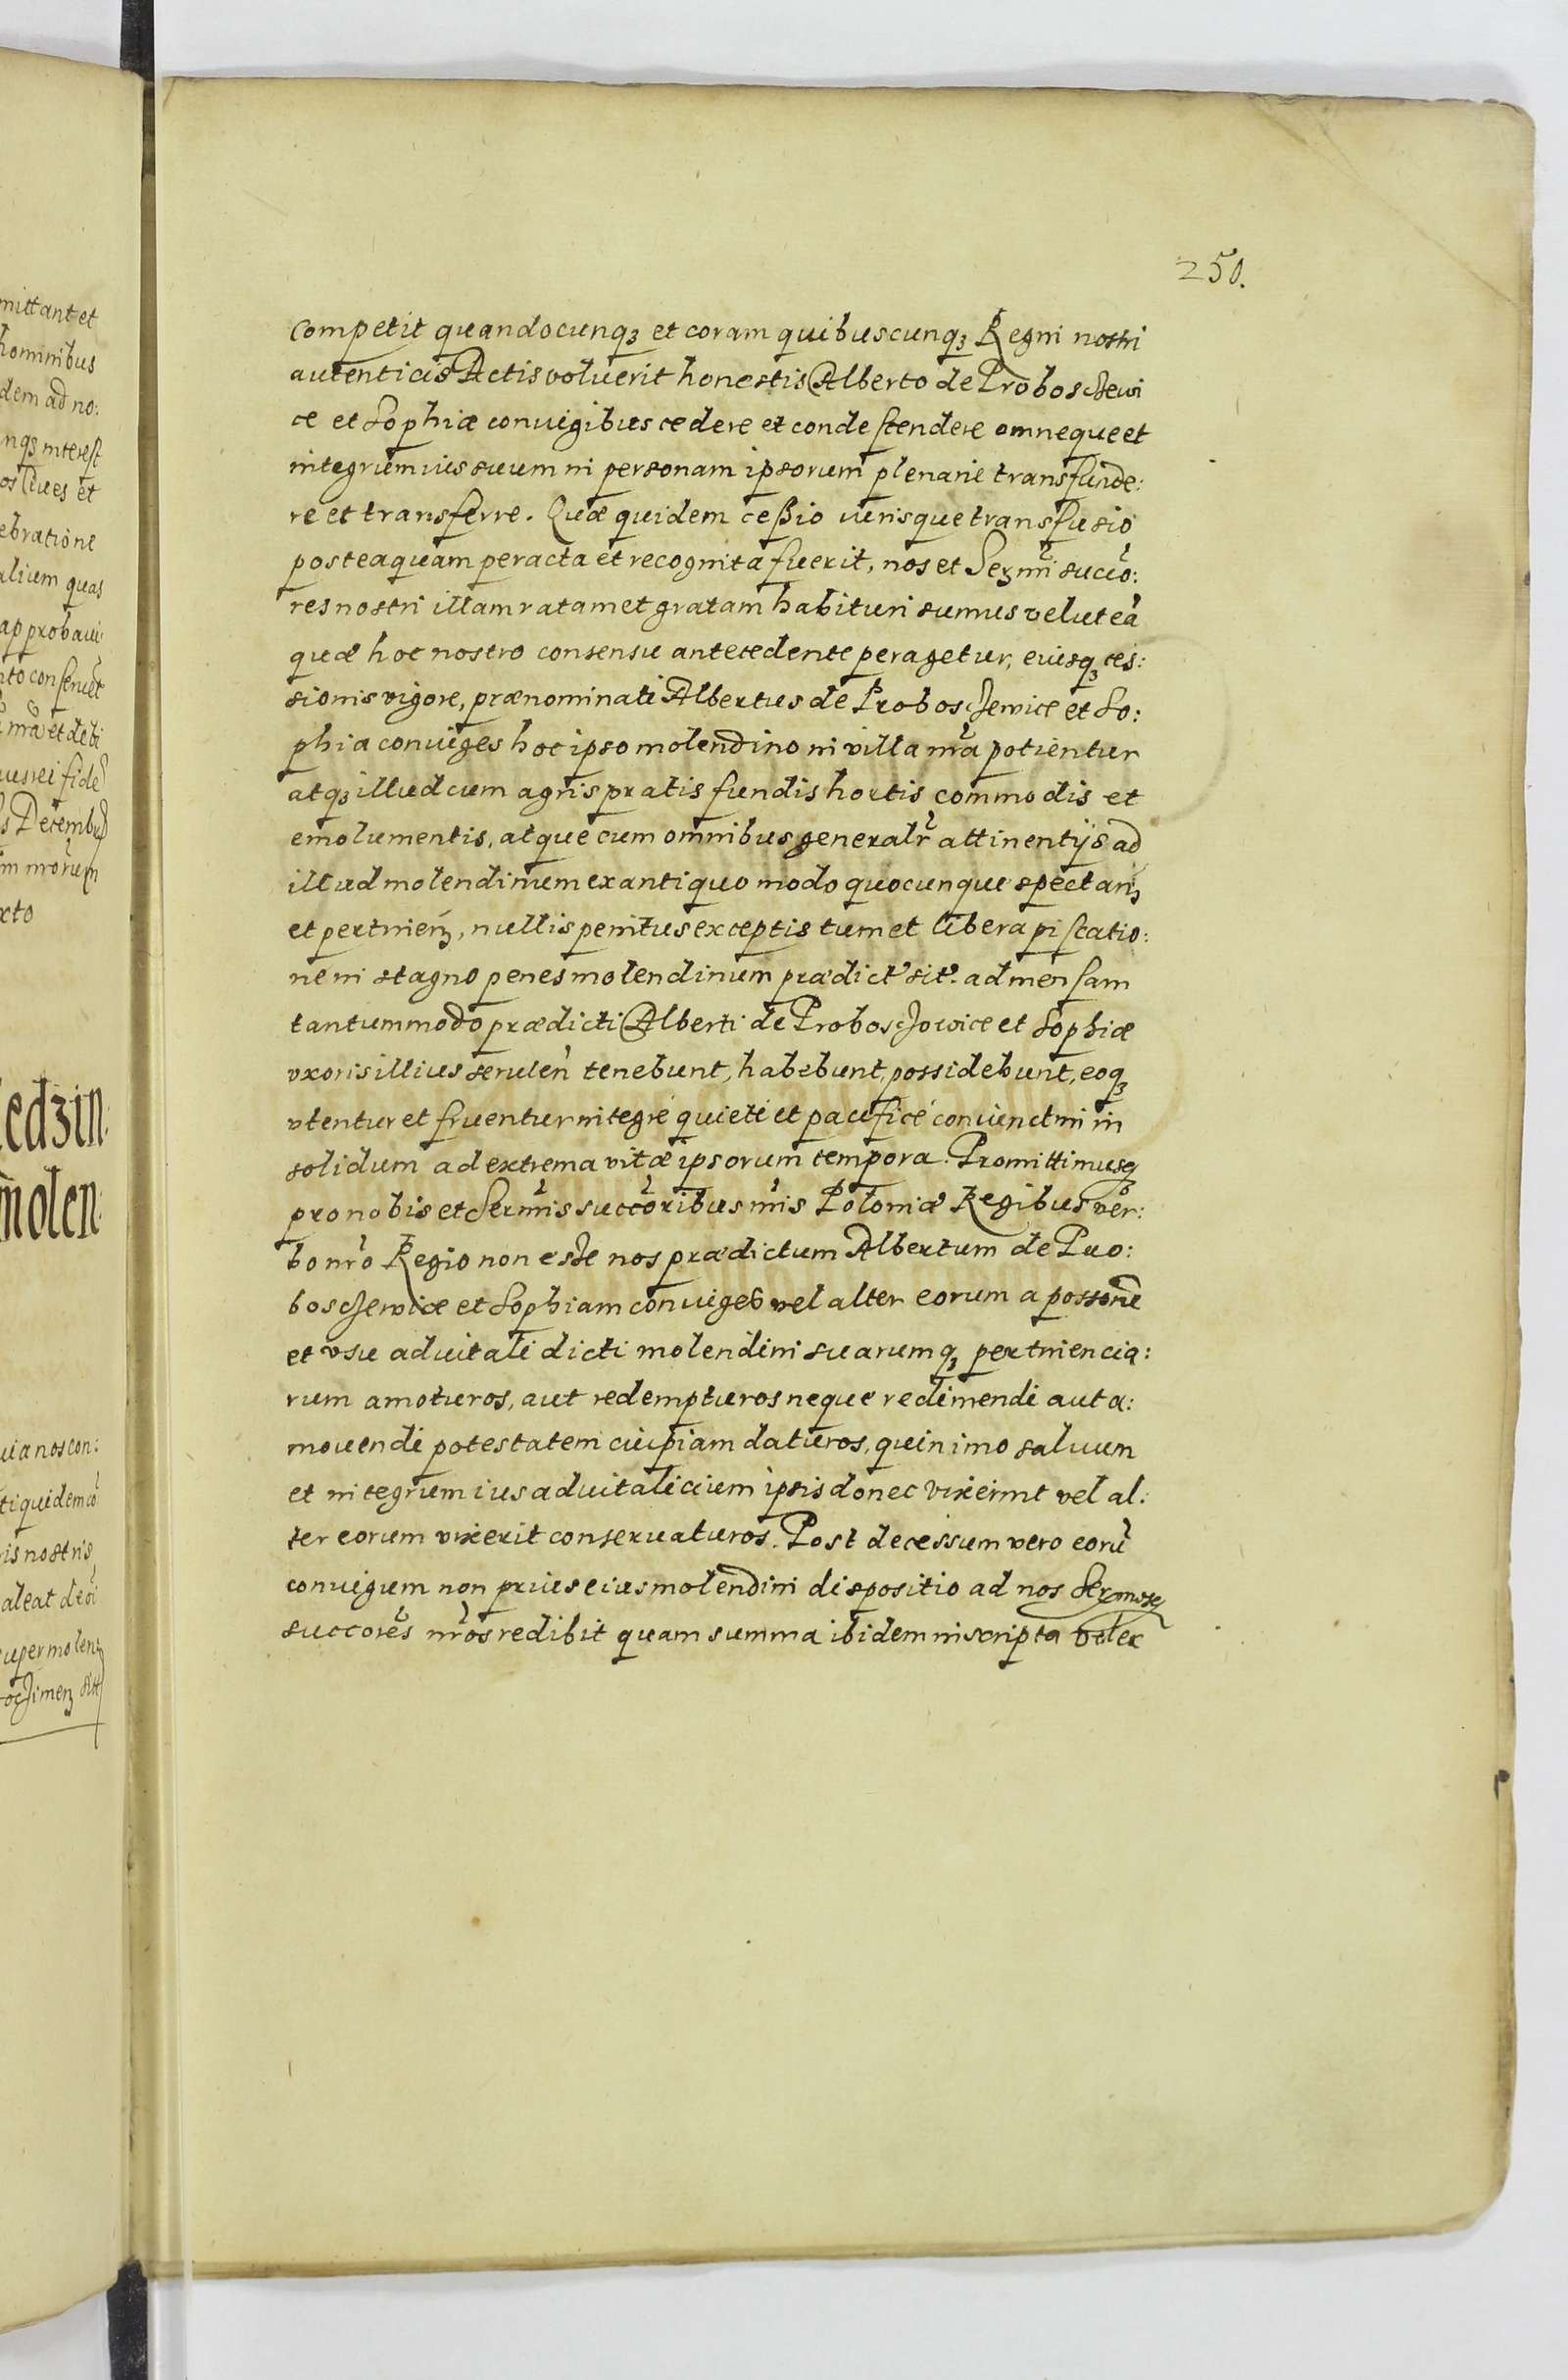 250.
competit quandocunqꝫ et coram quibuscunqꝫ Regni nostri
autenticis Actis voluerit honestis Alberto de Probosczewi
ce et Sophiæ coniugibus cedere et condescendere omneque et
integrum ius suum in personam ipsorum plenarie transfunde:
re et transferre. Quæ quidem ceßio iurisque transfusio
posteaquam peracta et recognita fuerit, nos et Serm̃i succõ:
res nostri illam ratam et gratam habituri sumus velut eã
quæ hoc nostro consensu antecedente peragetur, eiusqꝫ ces:
sionis vigore, prænominati Albertus de Probosczewice et So:
phia coniuges hoc ipso molendino in villa nr̃a potientur
atqꝫ illud cum agris pratis fundis hortis commodis et
emolumentis, atque cum omnibus generalr̃ attinentijs ad
illud molendinum ex antiquo modo quocunque spectanꝫ
et pertinenꝫ, nullis penitus exceptis tum et libera piscatio:
ne in stagno penes molendinum prædict' sit'. ad mensam
tantummodo prædicti Alberti de Proboszowice et Sophiæ
vxoris illius seruien̄ tenebunt, habebunt, possidebunt, eoqꝫ
vtentur et fruentur integrè quietè et pacificè coniunctim in
solidum ad extrema vitæ ipsorum tempora. Promittimusqꝫ
pro nobis et Serm̃is succõribus nr̃is Poloniæ Regibus ver:
bo nr̃o Regio non esse nos prædictum Albertum de Pro:
boszewice et Sophiam coniuges vel alter eorum a possone
et vsu aduitali dicti molendini suarumqꝫ pertinencia:
rum amoturos, aut redempturos neque redimendi aut a:
mouendi potestatem cuipiam daturos, quinimo saluum
et integrum ius aduitalicium ipsis donec vixerint vel al:
ter eorum vixerit conseruaturos. Post decessum vero eorũ
coniugum non prius eius molendini dispositio ad nos Sermosqꝫ
succores̃ nr̃os redibit quam summa ibidem inscripta vel ex